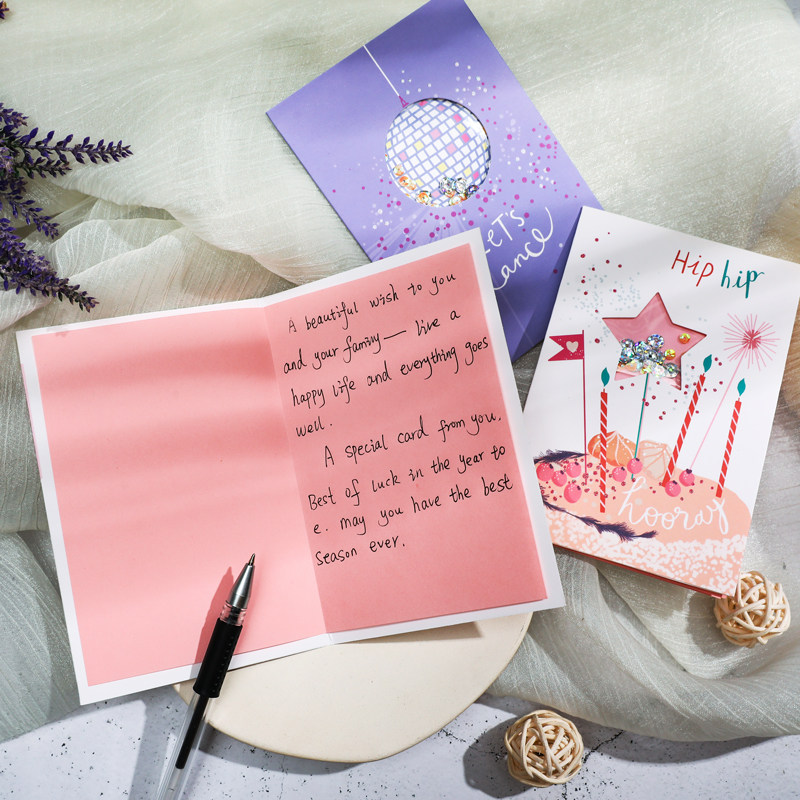 LeT's
Dance
Hip hip
hooray
A beautiful wish to you
and your faminy— live a
happy life and everything goes
well.
A special card from you.
Best of luck in the year to
e. may you have the best
season ever.